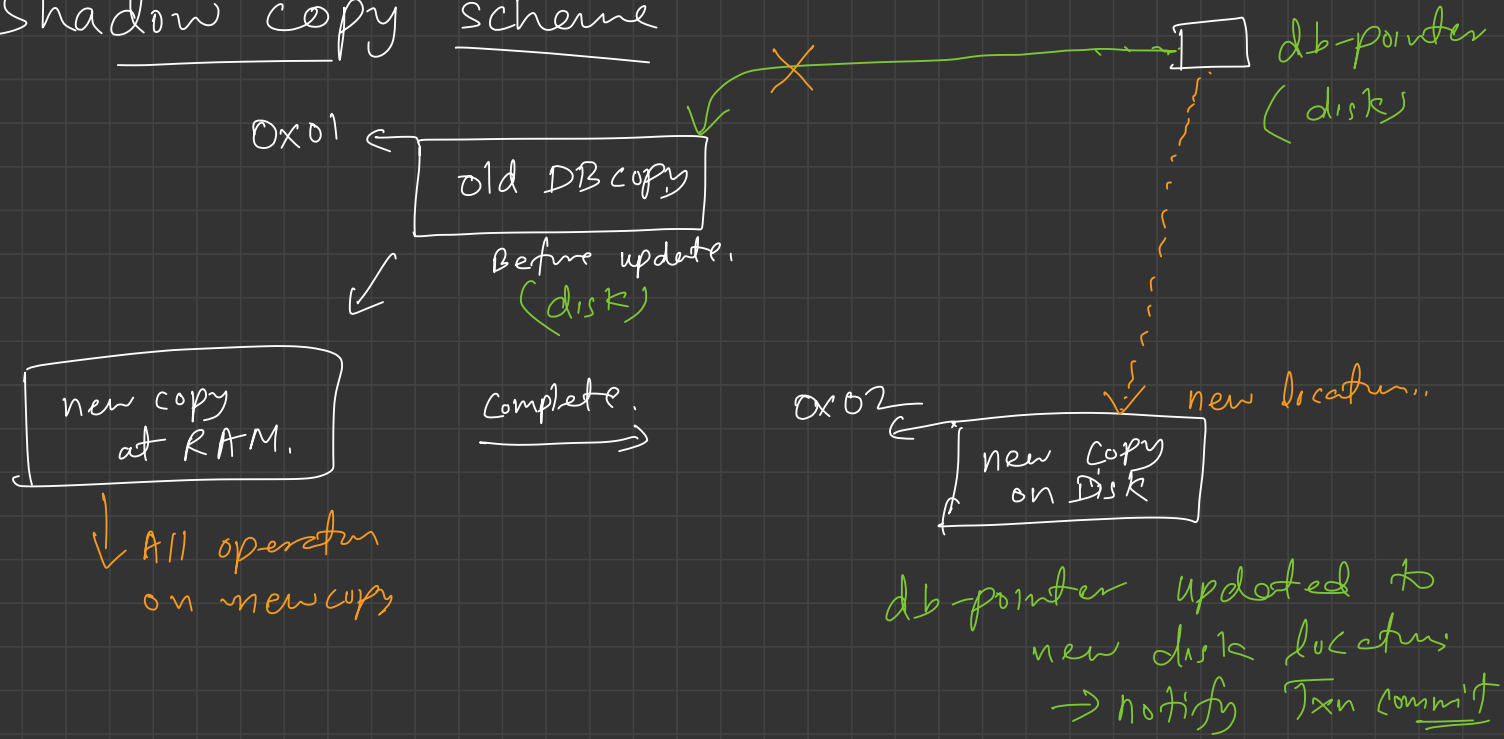 Shadow copy scheme
db-pointer
(disk)
0x01
old DB copy
Before update.
(disk)
new copy
at RAM.
Complete.
0x02
new location..
new copy
on Disk
All operation
on new copy
db-pointer updated to
new disk location.
→ notify Txn commit